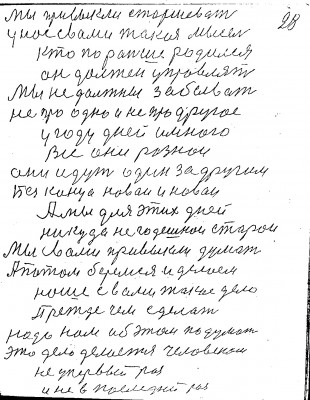 Мы привыкли старшеват 28
у нас с вами такая мысел
Кто по ранше родился
он должен управлят
Мы не должны забыват
не про одно и не про другое
у году дней много
Все они разнои
они идут один за другим
без конца новаи и новаи
А мы для этих дней
никуда негодешнои старои
Мы с вами привыкли думат
А потом беремся и делаем
наше с вами такое дело
Прежде чем сделат
надо нам об этом подумат
Это дело делается человеком
не упервый раз
и не в последнй раз